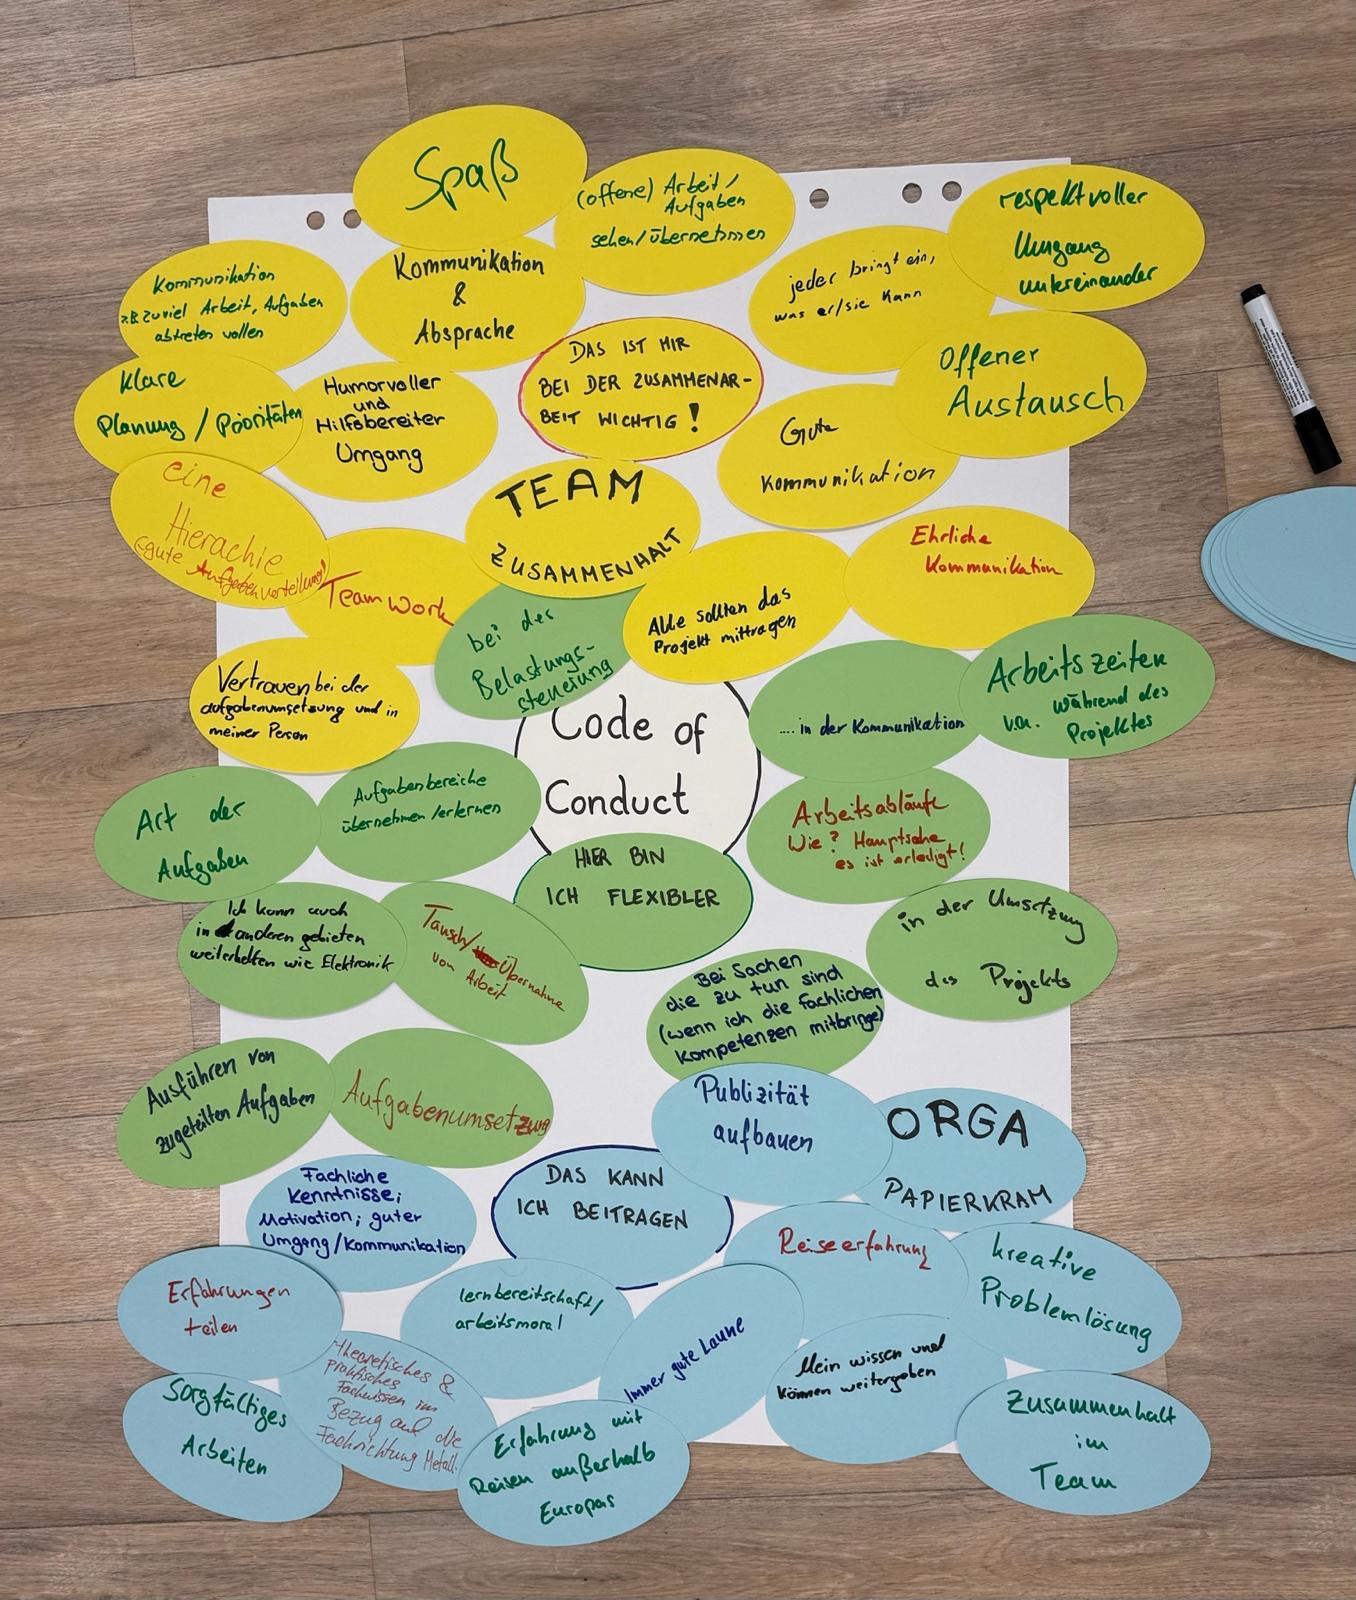 Spaß
(offene) Arbeit /
Aufgaben
sehen/übernehmen
respektvoller
Umgang
untereinander
Kommunikation
z.B. zuviel Arbeit, Aufgaben
abtreten wollen
Kommunikation
&
Absprache
jeder bringt ein,
was er/sie kann
DAS IST MIR
BEI DER ZUSAMMENAR-
BEIT WICHTIG!
Offener
Austausch
klare
Planung / Prioritäten
Humorvoller
und
Hilfsbereiter
Umgang
Gute
Kommunikation
eine
Hierachie
(gute Aufgabenverteilung)
TEAM
ZUSAMMENHALT
Ehrliche
Kommunikation
Teamwork
Alle sollten das
Projekt mittragen
bei der
Belastungs-
steuerung
Vertrauen bei der
aufgabenumsetzung und in
meiner Person
Code of
Conduct
.... in der Kommunikation
Arbeitszeiten
v.a. während des
Projektes
Art der
Aufgaben
Aufgabenbereiche
übernehmen/erlernen
Arbeitsabläufe
Wie? Hauptsache
es ist erledigt!
HIER BIN
ICH FLEXIBLER
Ich kann auch
in anderen gebieten
weiterhelfen wie Elektronik
Tausch/ Übernahme
von Arbeit
in der Umsetzung
des Projekts
Bei Sachen
die zu tun sind
(wenn ich die fachlichen
Kompetenzen mitbringe)
Ausführen von
zugeteilten Aufgaben
Aufgabenumsetzung
Publizität
aufbauen
ORGA
PAPIERKRAM
Fachliche
Kenntnisse;
Motivation; guter
Umgang/Kommunikation
DAS KANN
ICH BEITRAGEN
Reiseerfahrung
kreative
Problemlösung
Erfahrungen
teilen
lernbereitschaft/
arbeitsmoral
Immer gute Laune
Mein wissen und
können weitergeben
theoretisches &
praktisches
Fachwissen im
Bezug auf die
Fachrichtung Metall.
Sorgfältiges
Arbeiten
Erfahrung mit
Reisen außerhalb
Europas
Zusammenhalt
im
Team